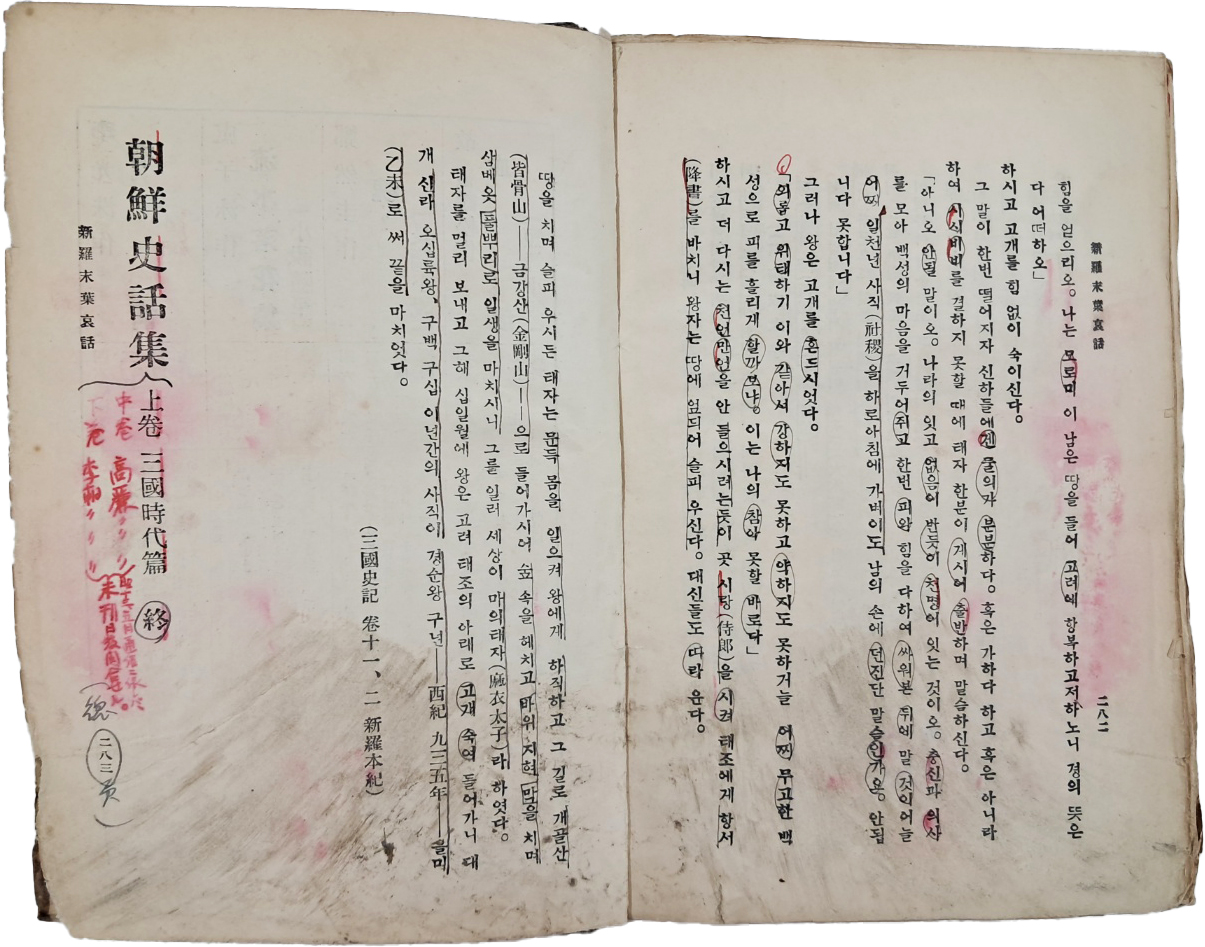 新羅末葉哀話
二八二
힘을 얻으리오。 나는 모로미 이 남은 땅을 들어 고려에 항부하고저하노니 경의 뜻은
다 어떠하오」
하시고 고개를 힘 없이 숙이신다。
그 말이 한번 떨어지자 신하들에겐 물의가 분분하다。 혹은 가하다 하고 혹은 아니라
하여 시시비비를 결하지 못할 때에 태자 한분이 게시어 출반하며 말슴하신다。
「아니오 안될 말이오。 나라의 잇고 없음이 반듯이 천명이 잇는 것이오。 충신과 의사
를 모아 백성의 마음을 거두어쥐고 한번 피와 힘을 다하여 싸워본 뒤에 말 것이어늘
어찌 일천년 사직(社稷)을 하로아침에 가벼이도 남의 손에 던진단 말슴인가요。 안됩
니다 못합니다」
그러나 왕은 고개를 흔드시엇다。
「외롭고 위태하기 이와 같아서 강하지도 못하고 약하지도 못하거늘 어찌 무고한 백
성으로 피를 흘리게 할까보냐。 이는 나의 참아 못할 바로다」
하시고 더 다시는 천언만언을 안 들으시려는듯이 곳 시랑(侍郞)을 시켜 태조에게 항서
(降書)를 바치니 왕자는 땅에 엎듸어 슬피 우신다。 대신들도 따라 운다。
땅을 치며 슬피 우시든 태자는 문득 몸을 일으켜 왕에게 하직하고 그 길로 개골산
(皆骨山)——금강산(金剛山)——으로 들어가시어 숲 속을 헤치고 바위 지혀 만을 치며
삼베옷 풀뿌리로 일생을 마치시니 그를 일러 세상이 마의태자(麻衣太子)라 하엿다。
태자를 멀리 보내고 그해 십일월에 왕은 고려 태조의 아래로 고개 숙여 들어가니 대
개 신라 오십륙왕、구백 구십 이년간의 사직이 경순왕 구년——西紀 九三五年——을미
(乙未)로 써 끝을 마치엇다。
(三國史記 卷十一、二 新羅本紀)
朝鮮史話集 上卷 三國時代篇 終
中卷 高麗〃〃〃
下卷 李朝〃〃〃
未刊
新羅末葉哀話
二八三